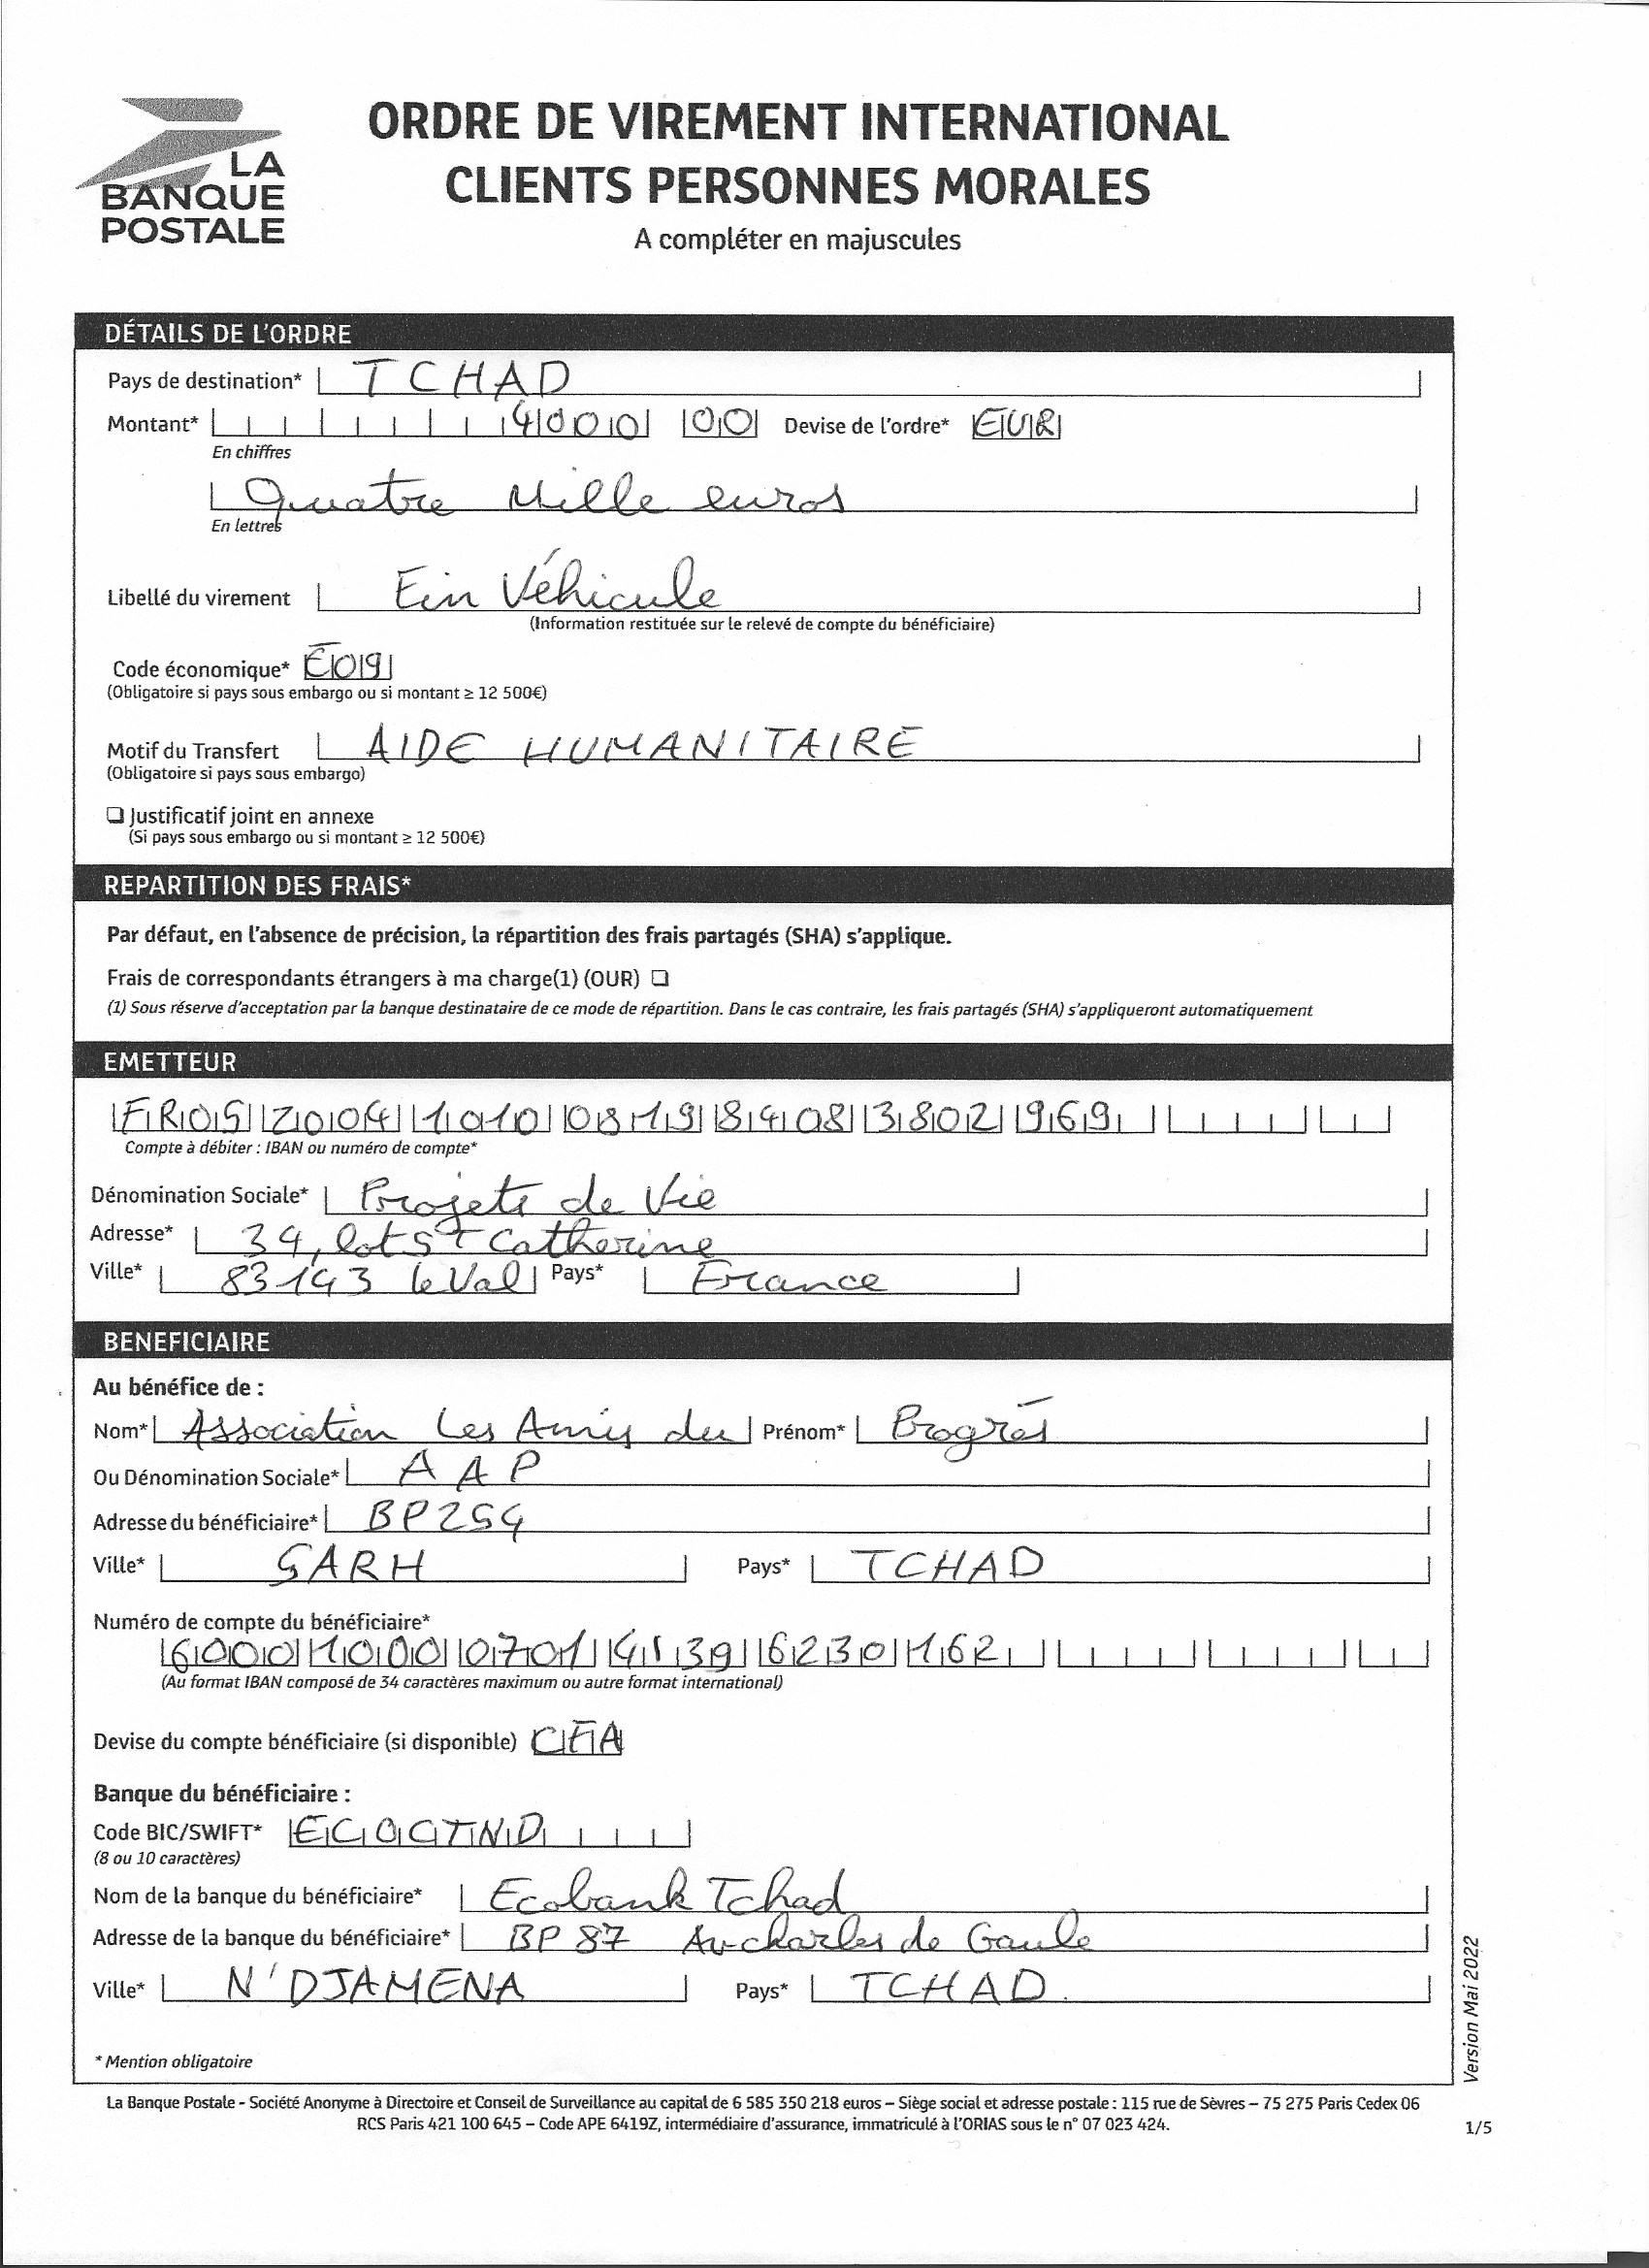 LA
BANQUE
POSTALE
ORDRE DE VIREMENT INTERNATIONAL
CLIENTS PERSONNES MORALES
A compléter en majuscules
DÉTAILS DE L'ORDRE
Pays de destination* TCHAD
Montant* 4000 00 Devise de l'ordre* EUR
En chiffres
Quatre Mille euros
En lettres
Libellé du virement Ein Véhicule
(Information restituée sur le relevé de compte du bénéficiaire)
Code économique* E09
(Obligatoire si pays sous embargo ou si montant ≥ 12 500€)
Motif du Transfert AIDE HUMANITAIRE
(Obligatoire si pays sous embargo)
❑ Justificatif joint en annexe
(Si pays sous embargo ou si montant ≥ 12 500€)
REPARTITION DES FRAIS*
Par défaut, en l'absence de précision, la répartition des frais partagés (SHA) s'applique.
Frais de correspondants étrangers à ma charge(1) (OUR) ❑
(1) Sous réserve d'acceptation par la banque destinataire de ce mode de répartition. Dans le cas contraire, les frais partagés (SHA) s'appliqueront automatiquement
EMETTEUR
FR05 2004 1010 0819 8408 3802 969
Compte à débiter : IBAN ou numéro de compte*
Dénomination Sociale* Projets de Vie
Adresse* 34, lot St Catherine
Ville* 83143 le Val Pays* France
BENEFICIAIRE
Au bénéfice de :
Nom* Association Les Amis du Prénom* Progrès
Ou Dénomination Sociale* A A P
Adresse du bénéficiaire* BP 254
Ville* SARH Pays* TCHAD
Numéro de compte du bénéficiaire*
6000 1000 0701 4139 6230 162
(Au format IBAN composé de 34 caractères maximum ou autre format international)
Devise du compte bénéficiaire (si disponible) CFA
Banque du bénéficiaire :
Code BIC/SWIFT* ECOCTND
(8 ou 10 caractères)
Nom de la banque du bénéficiaire* Ecobank Tchad
Adresse de la banque du bénéficiaire* BP 87 Av charles de Gaule
Ville* N'DJAMENA Pays* TCHAD.
* Mention obligatoire
Version Mai 2022
La Banque Postale - Société Anonyme à Directoire et Conseil de Surveillance au capital de 6 585 350 218 euros – Siège social et adresse postale : 115 rue de Sèvres – 75 275 Paris Cedex 06
RCS Paris 421 100 645 – Code APE 6419Z, intermédiaire d'assurance, immatriculé à l'ORIAS sous le n° 07 023 424.
1/5